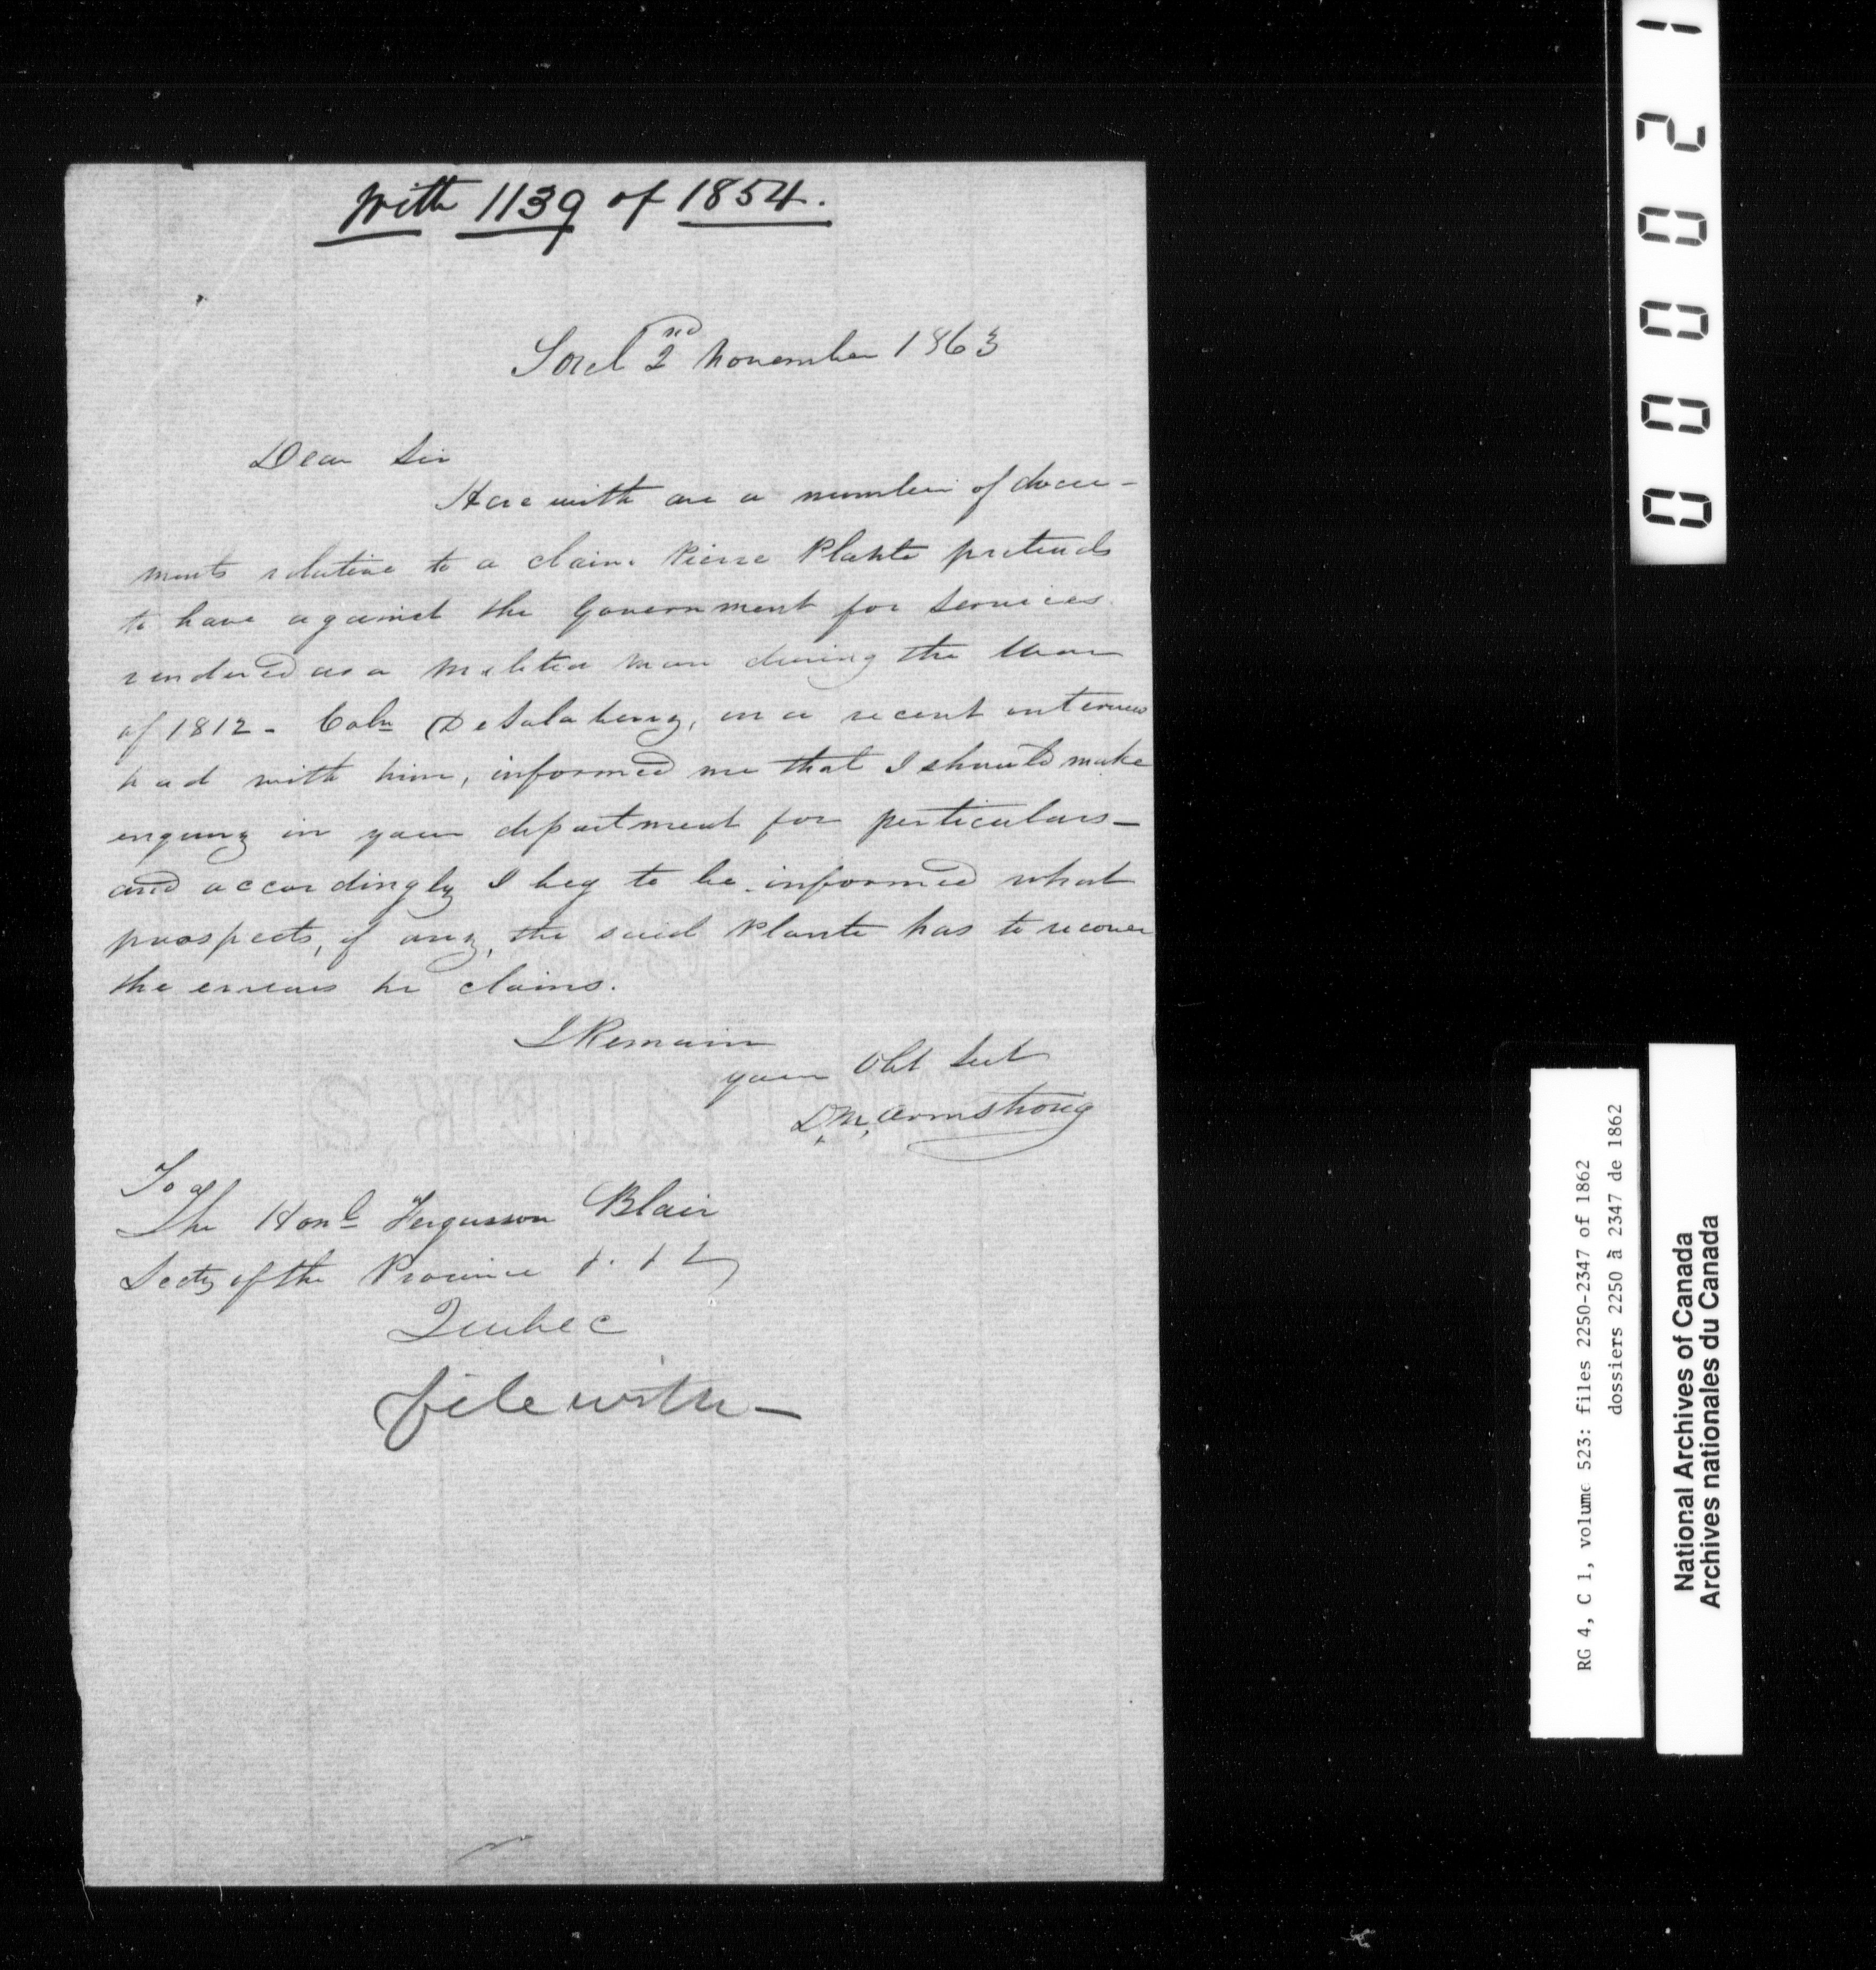 With 1139 of 1854.
Sorel 2nd November 1863
Dear Sir
Herewith are a number of docu-
ments relative to a claim Pierre Plante pretends
to have against the Government for Services
rendered as a Militia Man during the War
of 1812 - Coln DeSalaberry, in a recent interview
had with him, informed me that I should make
enquiry in your department for perticulars -
and accordingly I beg to be informed what
prospects, if any, the said Plante has to recover
the errears he claims.
I Remain
your Obt Svt
D. M. Armstrong
To
The Honl Fergusson Blair
Secty of the Province
Quebec
file with -
000021
RG 4, C 1, volume 523: files 2250-2347 of 1862
dossiers 2250 à 2347 de 1862
National Archives of Canada
Archives nationales du Canada